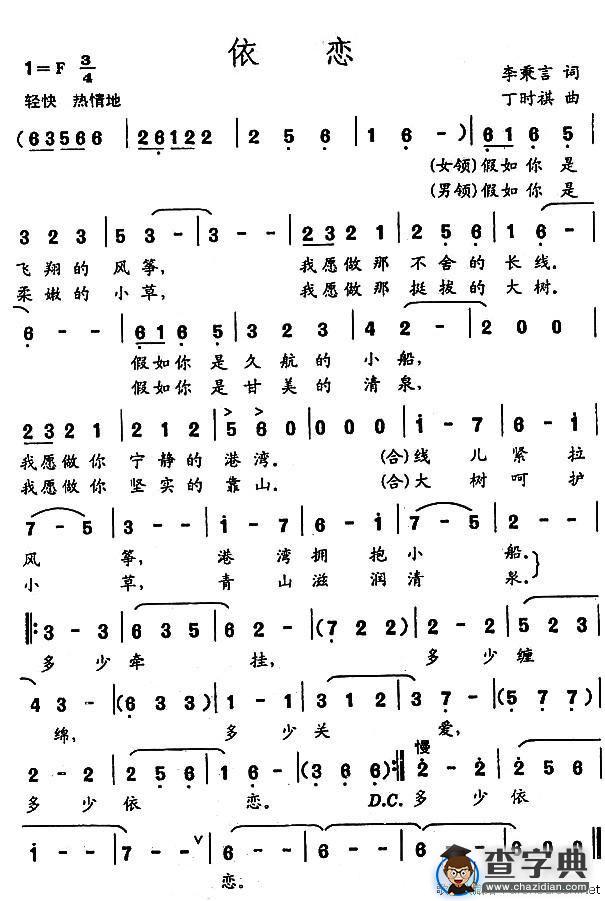 依 恋
1=F 3/4
李秉言 词
轻快 热情地
丁时祺 曲
(63566 | 26122 | 2 5 6 | 1 6 - ) | 61 6 5 |
(女领)假如你 是
(男领)假如你 是
3 2 3 | 5 3 - | 3 - - | 23 2 1 | 2 5 6 | 1 6 - |
飞翔的 风筝, 我愿做那 不舍的 长线.
柔嫩的 小草, 我愿做那 挺拔的 大树.
6 - - | 61 6 5 | 3 2 3 | 4 2 - | 2 0 0 |
假如你 是久航的 小船,
假如你 是甘美的 清泉,
23 2 1 | 2 1 2 | 5 6 0 | 0 0 0 | i - 7 | 6 - i |
我愿做你 宁静的 港湾. (合)线 儿紧 拉
我愿做你 坚实的 靠山. (合)大 树呵 护
7 - 5 | 3 - - | i - 7 | 6 - i | 5 - 5 | 2 - - |
风 筝, 港 湾拥 抱小 船.
小 草, 青 山滋 润清 泉.
3 - 3 | 6 3 5 | 6 2 - | (7 2 2) | 2 - 2 | 2 5 6 |
多 少牵 挂, 多 少缠
4 3 - | (6 3 3) | 1 - 1 | 3 1 2 | 3 7 - | (5 7 7) |
绵, 多 少关 爱,
慢
2 - 2 | 2 5 6 | 1 6 - | (3 6 6) | 2 - 2 | 2 5 6 |
多 少依 恋. D.C. 多 少依
i - - | 7 - - | 6 - - | 6 - - | 6 - - | 6 0 0
恋.
查字典
www.chazidian.com